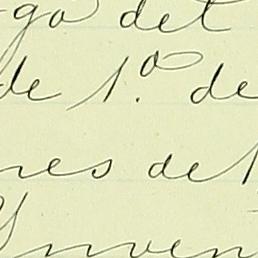 go del
de 1.º de
nes del
Ynven